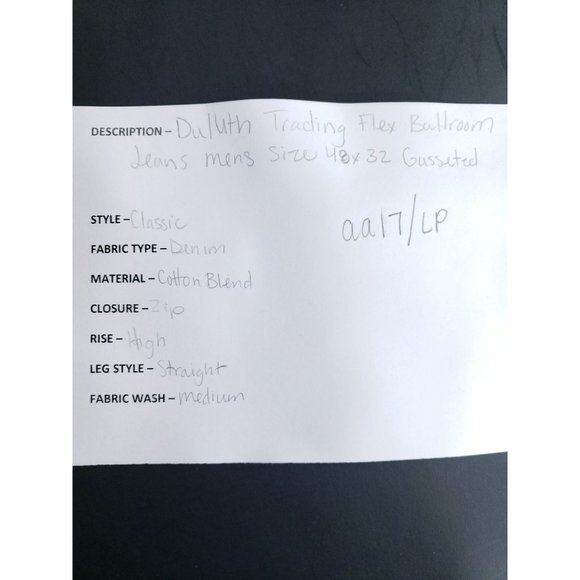 DESCRIPTION – Duluth Trading Flex Ballroom
Jeans mens Size 48x32 Gusseted
STYLE – Classic
aa17/LP
FABRIC TYPE – Denim
MATERIAL – Cotton Blend
CLOSURE – Zip
RISE – High
LEG STYLE – Straight
FABRIC WASH – medium